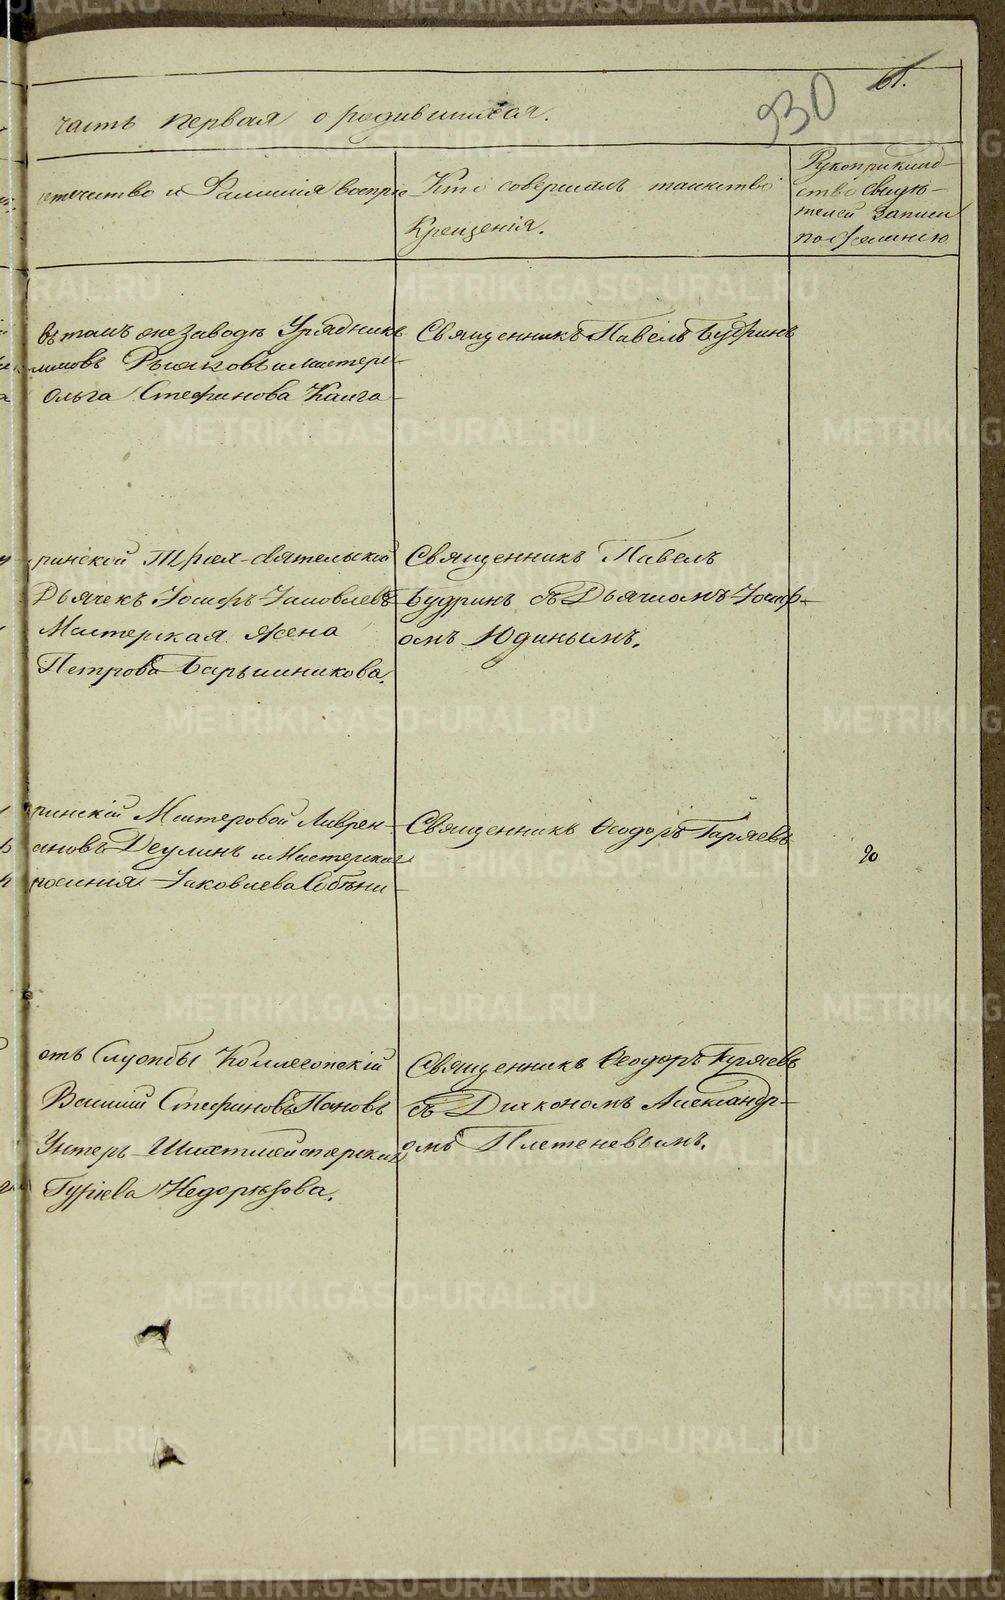 61.
930
часть первая о родившихся.
отечество и Фамилія воспрiе-
Кто совершалъ таинство
Крещенія.
Рукоприклад-
ство свидѣ-
телей записи
по желанію
въ томъ же заводѣ Урядникъ
Рыжковъ и мастерс-
Ольга Стефанова Кайго-
Священникъ Павелъ Будринъ
ринской Трех-святительской
Дьячекъ Іосифъ Іаковлевъ
Мастерская жена
Петрова Барышникова.
Священникъ Павелъ
Будринъ съ Дьячкомъ Іосиф-
омъ Юдинымъ.
ринскій Мастеровой Лаврен-
ановъ Деулинъ и Мастерская
росинія Іаковлева Собѣни-
Священникъ Ѳеодоръ Гаряевъ
отъ Службы Коллегожскій
Василій Стефановъ Поновъ
Унтеръ-Шихтмейстерская
Гуріева Недорѣзова.
Священникъ Ѳеодоръ Гуряевъ
съ Диакономъ Александр-
омъ Плетеневымъ.
METRIKI.GASO-URAL.RU